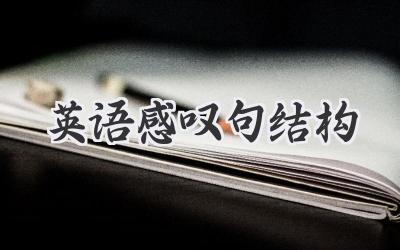 英语感叹句结构